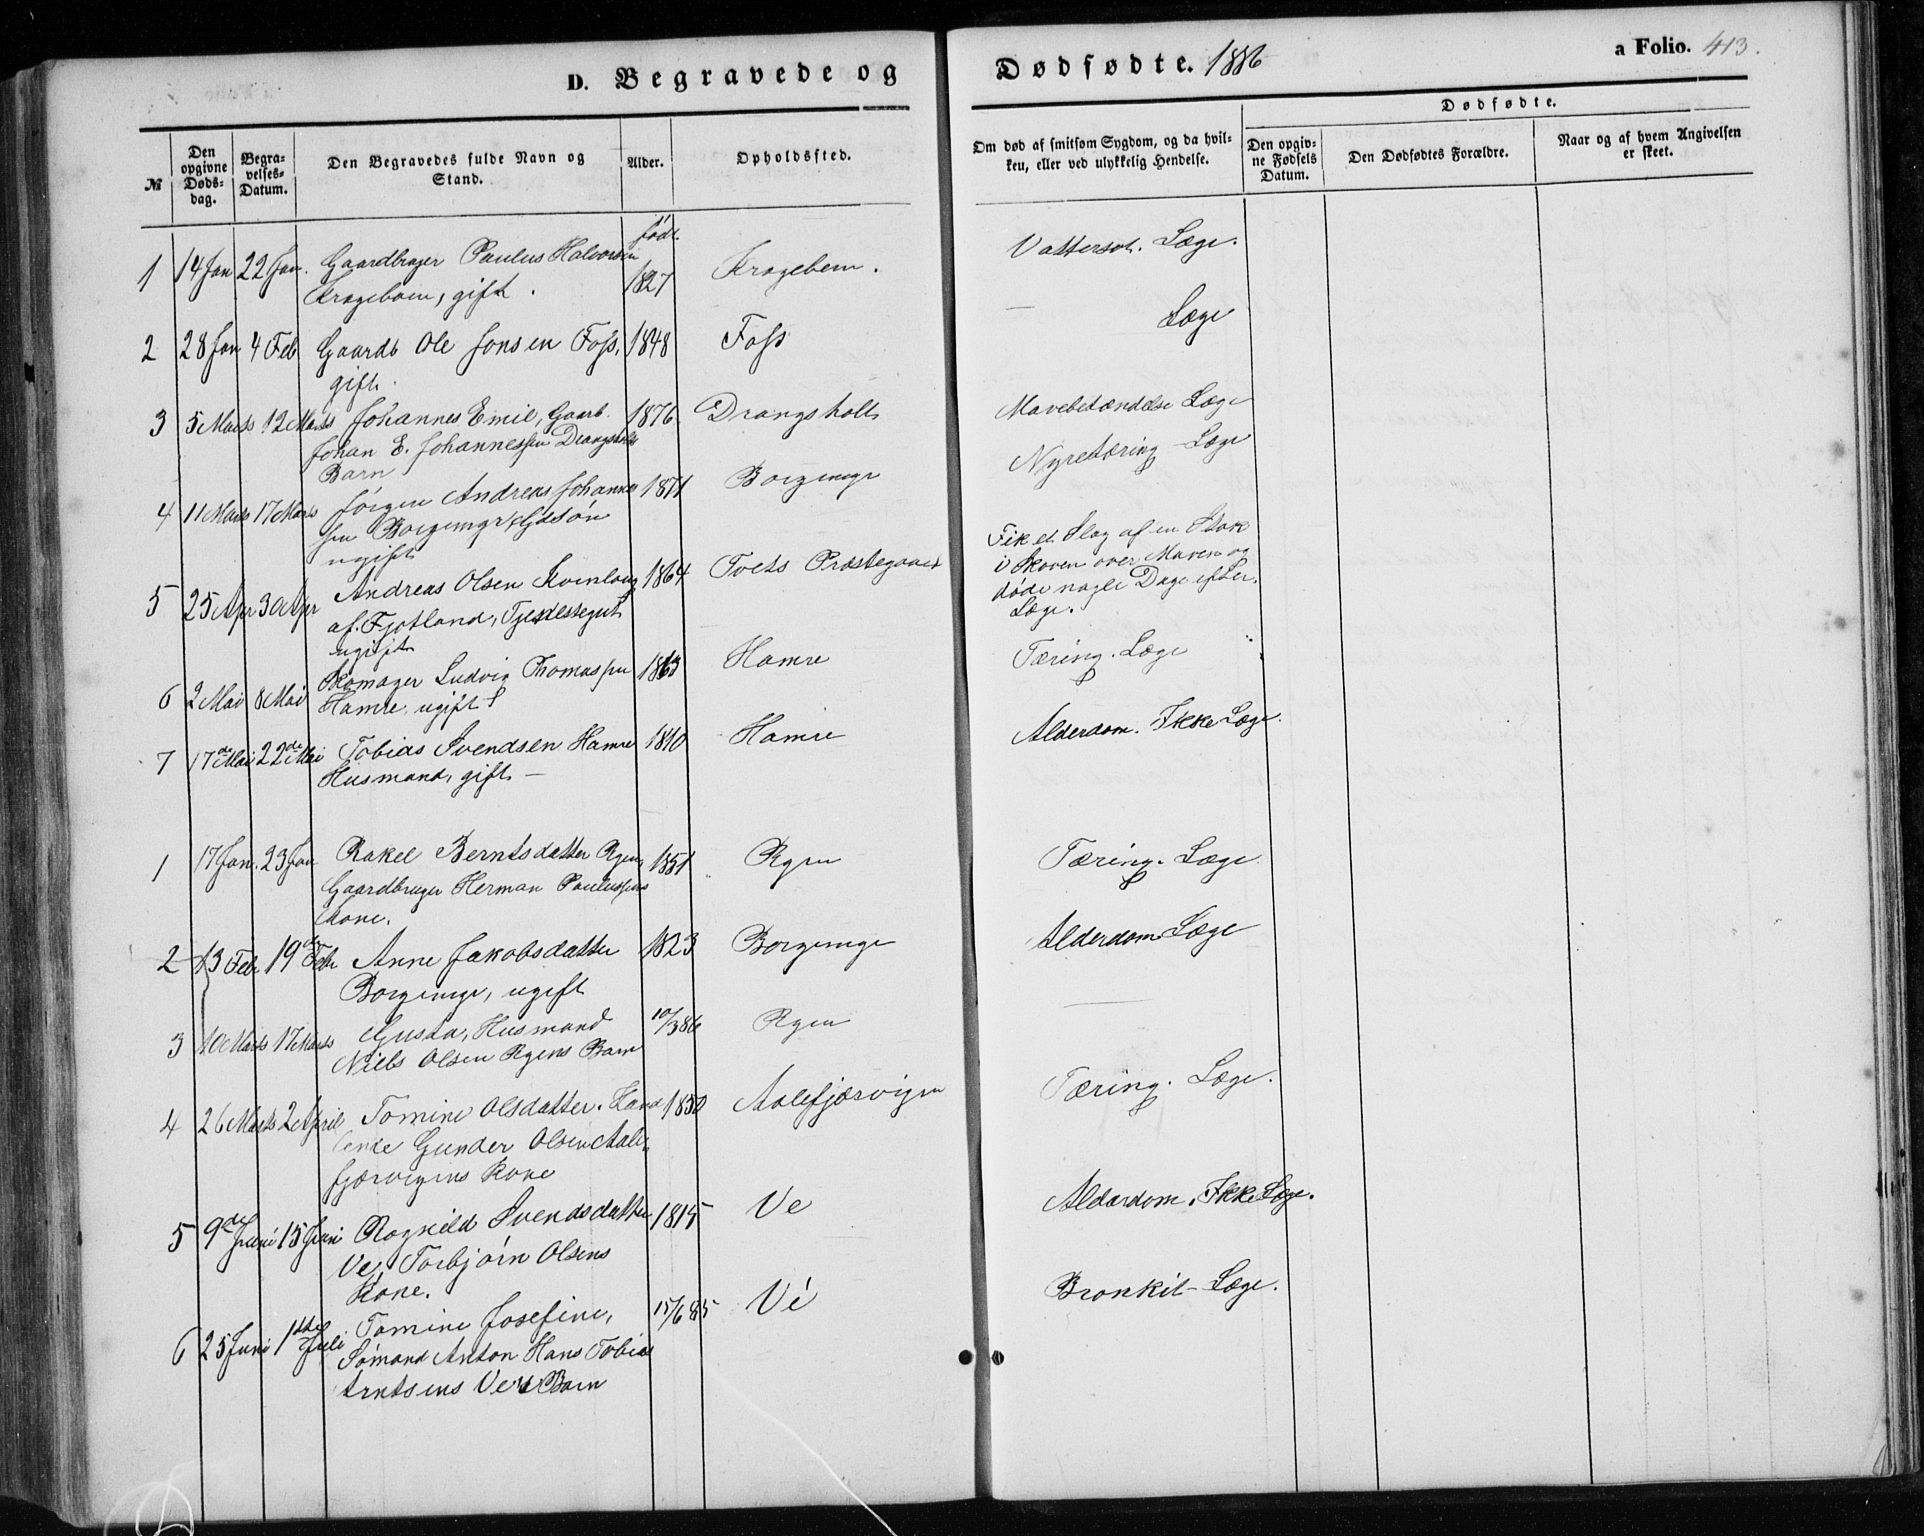 D. Begravede og Dødfødte. 1886 a Folio. 413.
№ Den opgivne Døds-dag. Begra-velses-Datum. Den Begravedes fulde Navn og Stand. Alder. Opholdssted. Om død af smitsom Sygdom, og da hvil-ken, eller ved ulykkelig Hendelse. Dødfødte.
Den opgiv-ne Fødsels Datum. Den Dødfødtes Forældre. Naar og af hvem Angivelsen er skeet.
født
1 14 Jan 22 Jan. Gaardbruger Paulus Halvorsen 1827 Krageboen. Vattersot. Læge.
Krageboen, gift.
2 28 Jan 4 Feb Gaardb Ole Jonsen Foss, 1848 Foss Læge
gift.
3 5 Marts 12 Marts Johannes Emil, Gaarb. 1876 Drangsholt Mavebetændelse Læge
Johan E. Johannessen Drangsholts
Barn
4 11 Marts 17 Marts Jørgen Andreas Johannes 1871 Borgemyr Nyretæring Læge
sen Borgemyr
ugift
5 25 Apr 30 Apr Andreas Olsen Kvinlaug 1864 Tveits Præstegaard Fik et Slag af en Stok
af Fjotland, Tjenestegut i Skoven over Maven og
ugift døde nogle Dage efter.
Læge.
6 2 Mai 8 Mai Skomager Ludvig Thomassen 1863 Hamre Tæring. Læge
Hamre, ugift
7 17de Mai 22de Mai Tobias Svendsen Hamre 1810 Hamre Alderdom. Ikke Læge.
Husmand, gift –
1 17 Jan. 23 Jan Rakel Berntsdatter Ryen, 1851 Ryen Tæring. Læge
Gaardbruger Herman Paulussens
Kone.
2 13 Feb 19de Feb Anne Jakobsdatter 1823 Borgemyr Alderdom Læge
Borgemyr, ugift
3 10 Marts 17 Marts Gusta, Husmand 10/3 86 Ryen
Niels Olsen Ryens Barn
4 26 Marts 2 April Tomine Olsdatter. 1850 Aalefjærvigen Tæring. Læge.
Gunder Olsen Aale-
fjærvigens Kone
5 9de Juni 15 Juni Ragnild Svendsdatter 1815 Ve Alderdom. Ikke Læge.
Ve, Torbjørn Olsens
Kone.
6 25 Juni 1ste Juli Tomine Josefine, 15/6 85 Vé Bronkit – Læge.
Sømand Anton Hans Tobias
Arntsens Ve's Barn